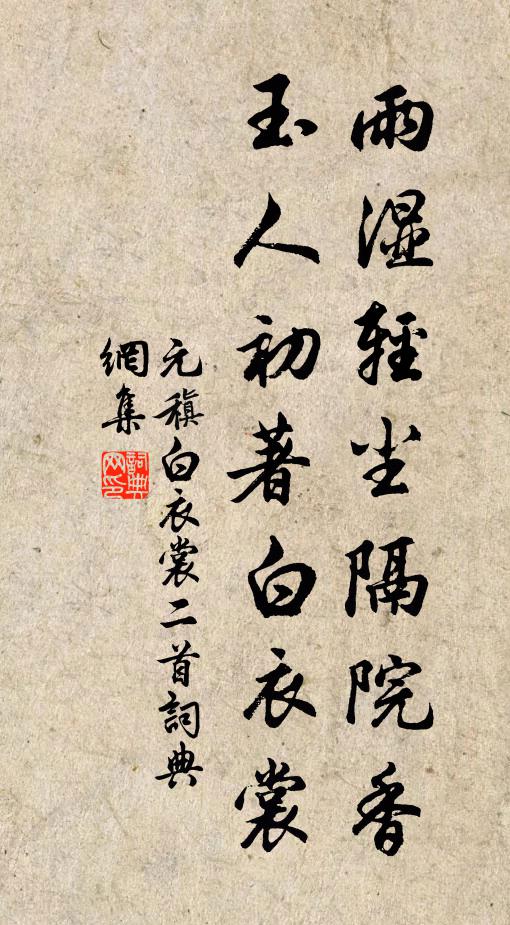 雨湿輕尘隔院香
玉人初著白衣裳
元稹白衣裳二首詞典
網集
詞典
网印